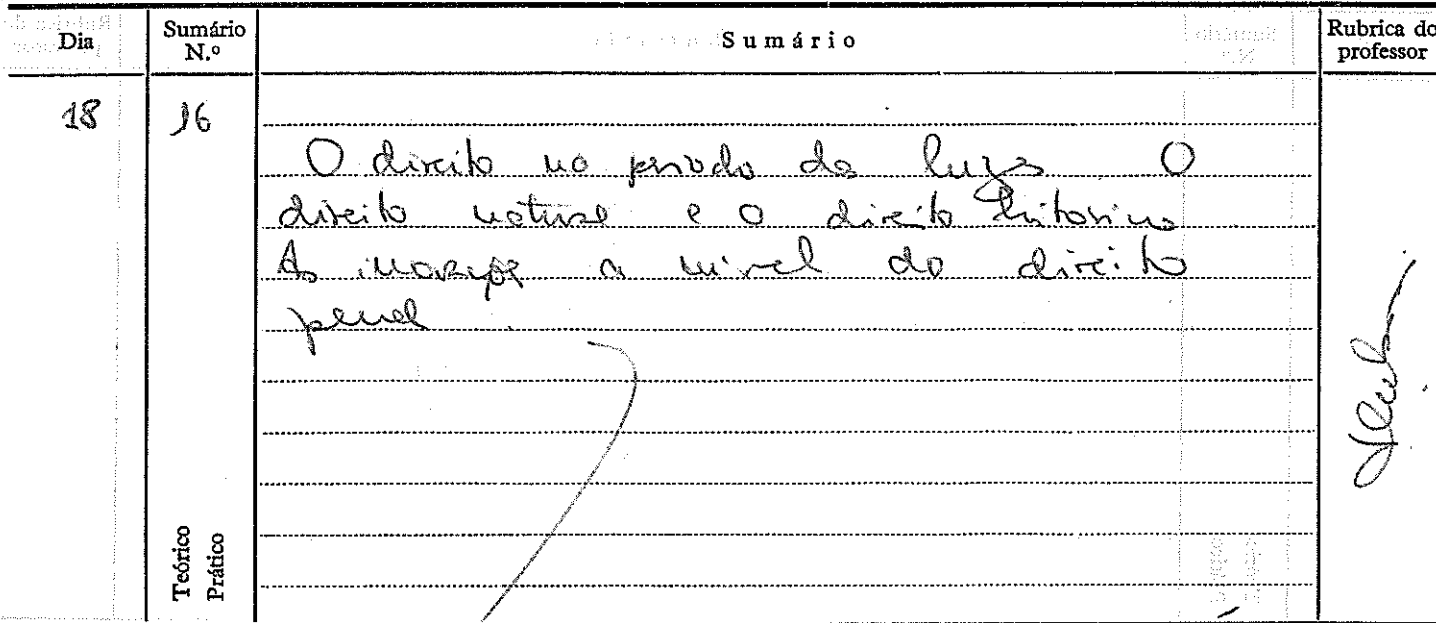 Dia
Sumário N.º
Sumário
Rubrica do professor
18
16
O direito no período das luzes O
direito natural e o direito
As inovações a nível do direito
penal.
Teórico
Prático